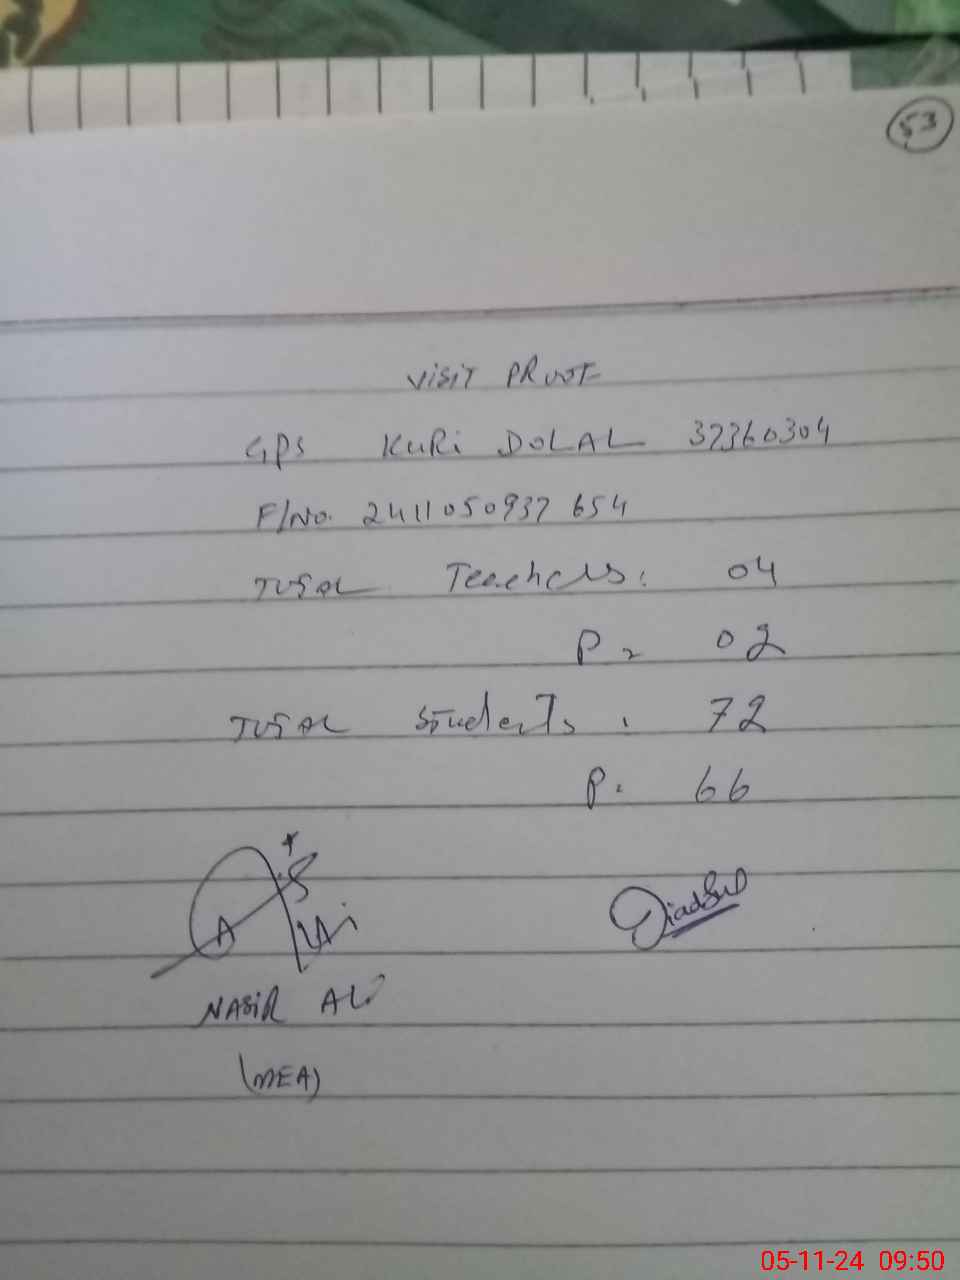 53
VISIT PROOF
GPS KURI DOLAL 37360304
F/No. 2411050937654
TOTAL Teachers: 04
P = 02
TOTAL Students: 72
P: 66
NASIR ALI
(MEA)
05-11-24 09:50